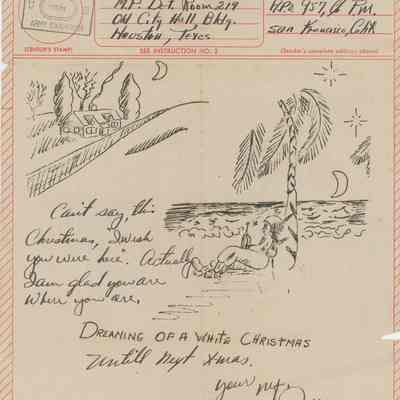 M.P. Det. Room 219
Old City Hall, Bldg.
Houston, Texas
APO 957, c/o P.M.
San Francisco, Calif
ARMY EXAMINER
(CENSOR'S STAMP)
SEE INSTRUCTION NO. 2
(Sender's complete address above)
Can't say, this
Christmas, I wish
you were here. Actually
I am glad you are
where you are.
DREAMING OF A WHITE CHRISTMAS
Untill Next Xmas.
your